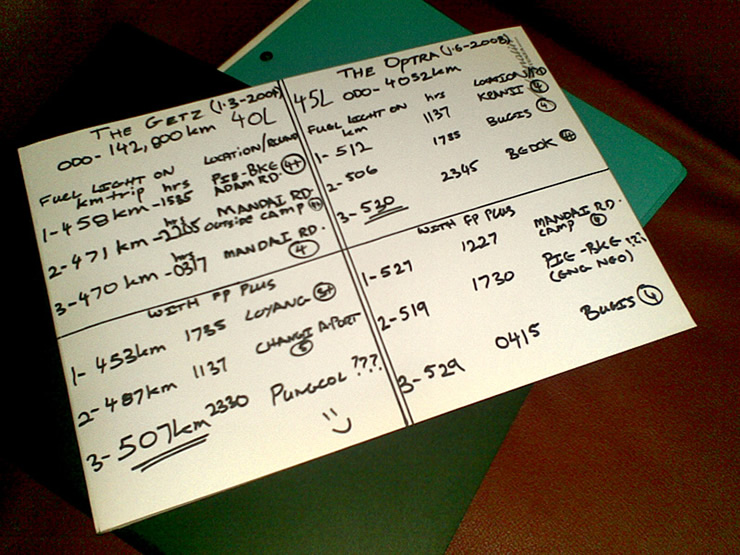 THE GETZ (1·3-2008)
ODO- 142,800km 40L
FUEL LIGHT ON LOCATION/ROUND
km trip hrs
1-458km -1585 PIE-BKE ADAM RD. 4+
2-471 km - hrs MANDAI RD. OUTSIDE CAMP
3-470 km - hrs 0317 MANDAI RD. 4
WITH FP PLUS
1- 453km 1735 LOYANG 3+
2-487km 1137 CHANGI AIRPORT
3-507km 2330 PUNGGOL ???
THE OPTRA (1·6-2008)
45L ODO- 4032km
FUEL LIGHT ON hrs
km
1-512 1137 KRANJI 4
2-506 1735 BUGIS 4
3-520 2345 BEDOK 4
WITH FP PLUS
1-527 1227 MANDAI RD. CAMP 4
2-519 1730 PIE-BKE ???
(ENG NEO)
3-529 0415 BUGIS 4